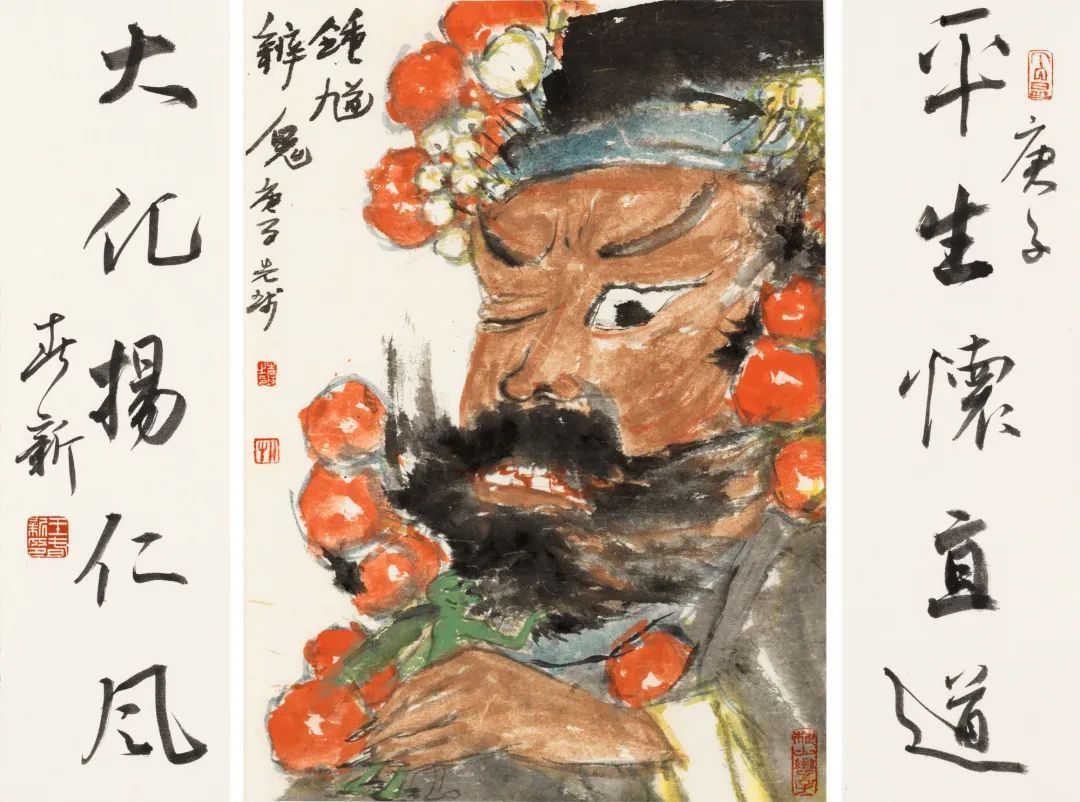 庚子
平生懷直道
鍾馗
辨鬼 庚子
大化揚仁風
春新
王春新印